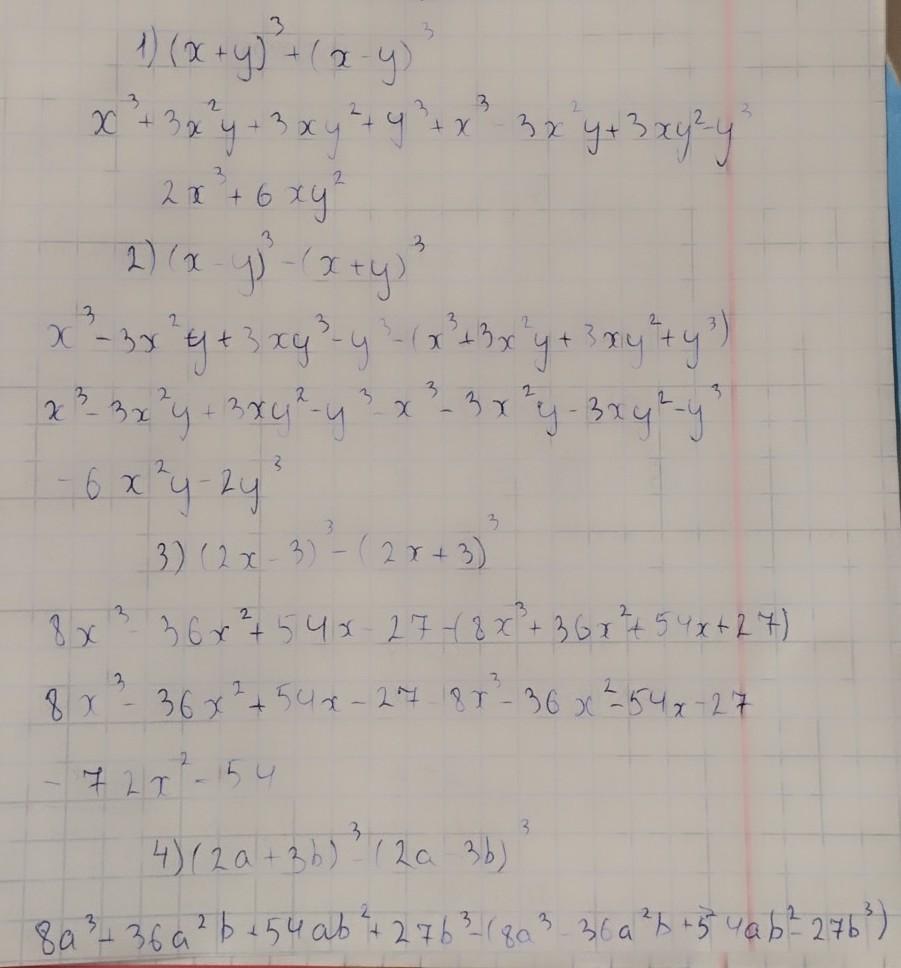 1) (x+y)³+(x-y)³
x³+3x²y+3xy²+y³+x³-3x²y+3xy²-y³
2x³+6xy²
2) (x-y)³-(x+y)³
x³-3x²y+3xy³-y³-(x³+3x²y+3xy²+y³)
x³-3x²y+3xy²-y³-x³-3x²y-3xy²-y³
-6x²y-2y³
3) (2x-3)³-(2x+3)³
8x³-36x²+54x-27-(8x³+36x²+54x+27)
8x³-36x²+54x-27-8x³-36x²-54x-27
-72x²-54
4) (2a+3b)³-(2a-3b)³
8a³+36a²b+54ab²+27b³-(8a³-36a²b+54ab²-27b³)